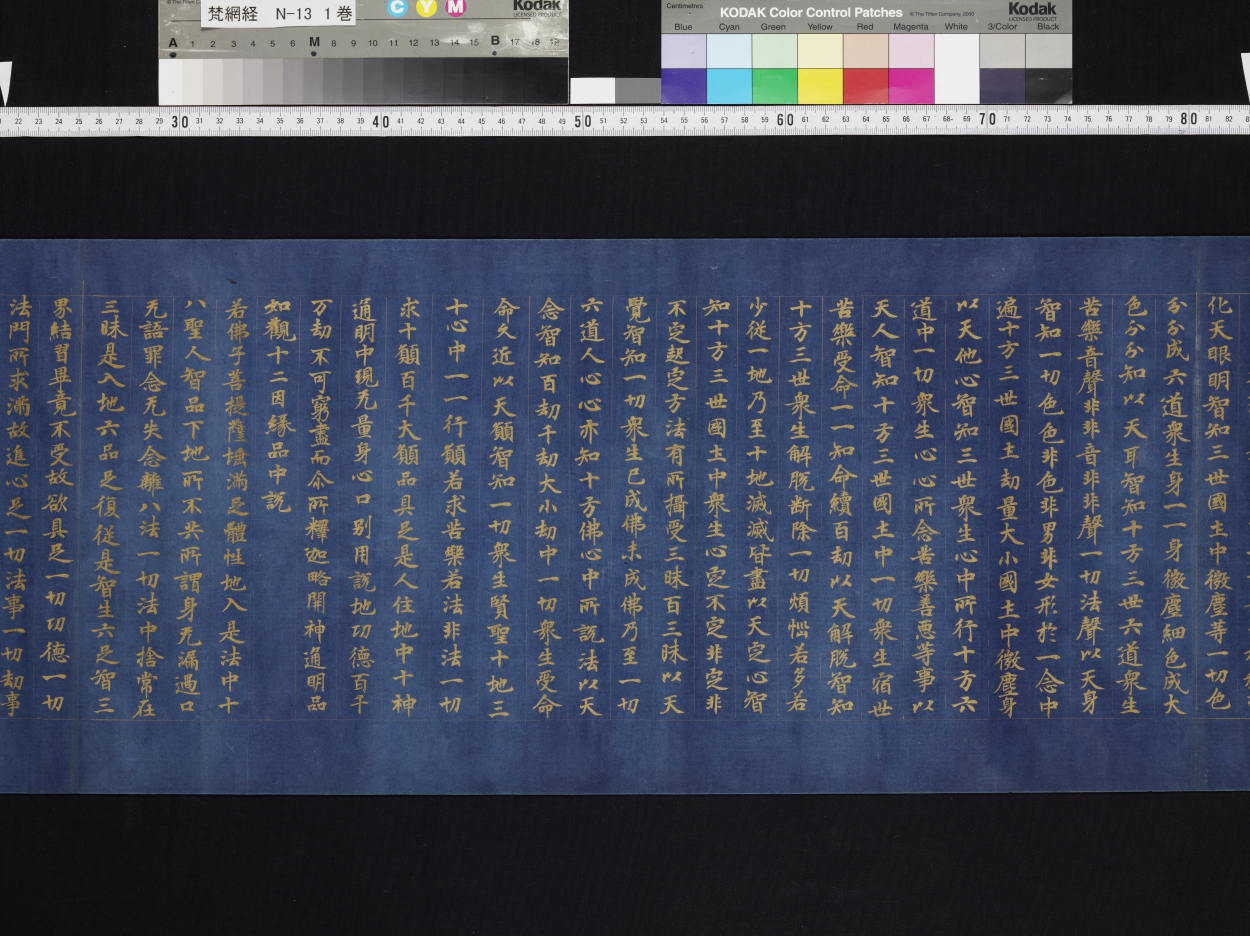 梵網経 N-13 1巻
C Y M
Kodak
LICENSED PRODUCT
A 1 2 3 4 5 6 M 8 9 10 11 12 13 14 15 B 17 18 19
Centimetres
KODAK Color Control Patches
© The Tiffen Company, 2000
Kodak
LICENSED PRODUCT
Blue Cyan Green Yellow Red Magenta White 3/Color Black
22 23 24 25 26 27 28 29 30 31 32 33 34 35 36 37 38 39 40 41 42 43 44 45 46 47 48 49 50 51 52 53 54 55 56 57 58 59 60 61 62 63 64 65 66 67 68 69 70 71 72 73 74 75 76 77 78 79 80 81 82
化天眼明智知三世國土中微塵等一切色
分分成六道衆生身一一身微塵細色成大
色分分知以天耳智知十方三世六道衆生
苦樂音聲非非音非非聲一切法聲以天身
智知一切色色非色非男非女形於一念中
遍十方三世國土劫量大小國土中微塵身
以天他心智知三世衆生心中所行十方六
道中一切衆生心心所念苦樂善惡等事以
天人智知十方三世國土中一切衆生宿世
苦樂受命一一知命續百劫以天解脫智知
十方三世衆生解脫斷除一切煩惱若多若
少從一地乃至十地滅滅皆盡以天定心智
知十方三世國土中衆生心定不定非定非
不定起定方法有所攝受三昧百三昧以天
覺智知一切衆生已成佛未成佛乃至一切
六道人心心亦知十方佛心中所說法以天
念智知百劫千劫大小劫中一切衆生受命
命久近以天願智知一切衆生賢聖十地三
十心中一一行願若求苦樂若法非法一切
求十願百千大願品具足是人住地中十神
通明中現无量身心口別用說地功德百千
万劫不可窮盡而尒所釋迦略開神通明品
如觀十二因緣品中說
若佛子菩提薩埵滿足體性地入是法中十
八聖人智品下地所不共所謂身无漏過口
无語罪念无失念離八法一切法中捨常在
三昧是入地六品足復從是智生六足智三
界結習畢竟不受故欲具足一切功德一切
法門所求滿故進心足一切法事一切劫事